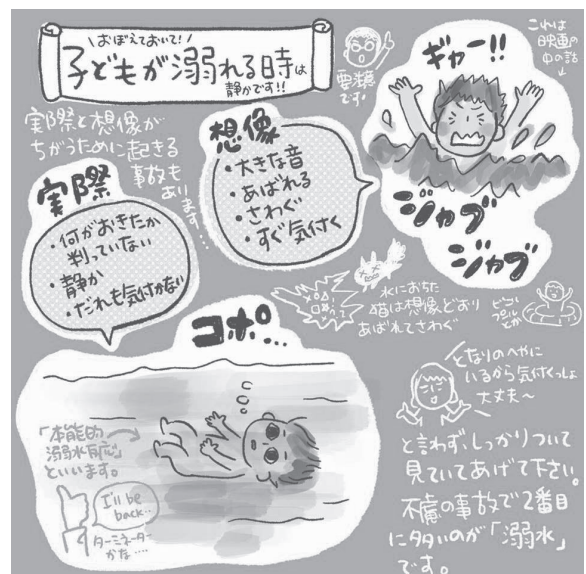 \おぼえておいて!/
子どもが溺れる時は
静かです!!
要確
です!
ギャー!!
これは
映画の
中の話
↓
実際と想像が
ちがうために起きる
事故も
あります...
想像
・大きな音
・あばれる
・さわぐ
・すぐ気付く
実際
・何がおきたか
判っていない
・静か
・だれも気付かない
ジャブ
ジャブ
水におちた
猫は想像どおり
あばれてさわぐ
ビニール
プールとか
コポ...
「本能的
溺水反応」
といいます。
I'll be
back...
ターミネーター
かな....
となりのへやに
いるから気付くっしょ
大丈夫〜
と言わず、しっかりついて
見ていてあげて下さい。
不慮の事故で2番目
に多いのが「溺水」
です。